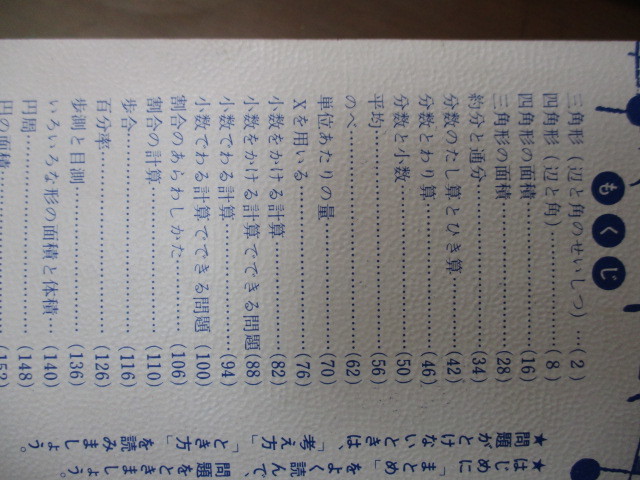 もくじ
三角形（辺と角のせいしつ）…(2)
四角形（辺と角）…………(8)
四角形の面積…………(16)
三角形の面積…………(28)
約分と通分…………(34)
分数のたし算とひき算…………(42)
分数とわり算…………(46)
分数と小数…………(50)
平均…………(56)
のべ…………(62)
単位あたりの量…………(70)
Xを用いる…………(76)
小数をかける計算…………(82)
小数をかける計算でできる問題(88)
小数でわる計算…………(94)
小数でわる計算でできる問題(100)
割合のあらわしかた…………(106)
割合の計算…………(110)
歩合…………(116)
百分率…………(126)
歩測と目測…………(136)
いろいろな形の面積と体積…(140)
円周…………(148)
円の面積…………(152)
★はじめに「まとめ」をよく読んで、問題をときましょう。
★問題がとけないときは、「考え方」「とき方」を読みましょう。